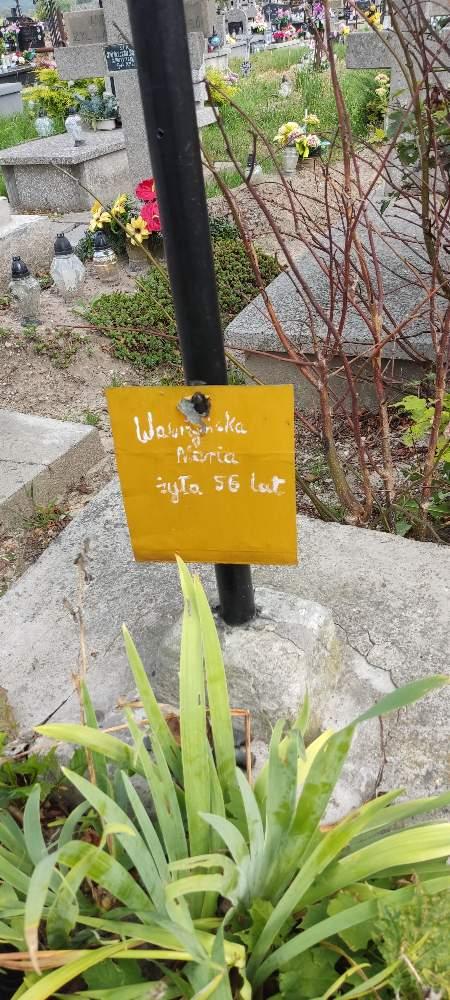 Wawrzyńska
Maria
żyła 56 lat